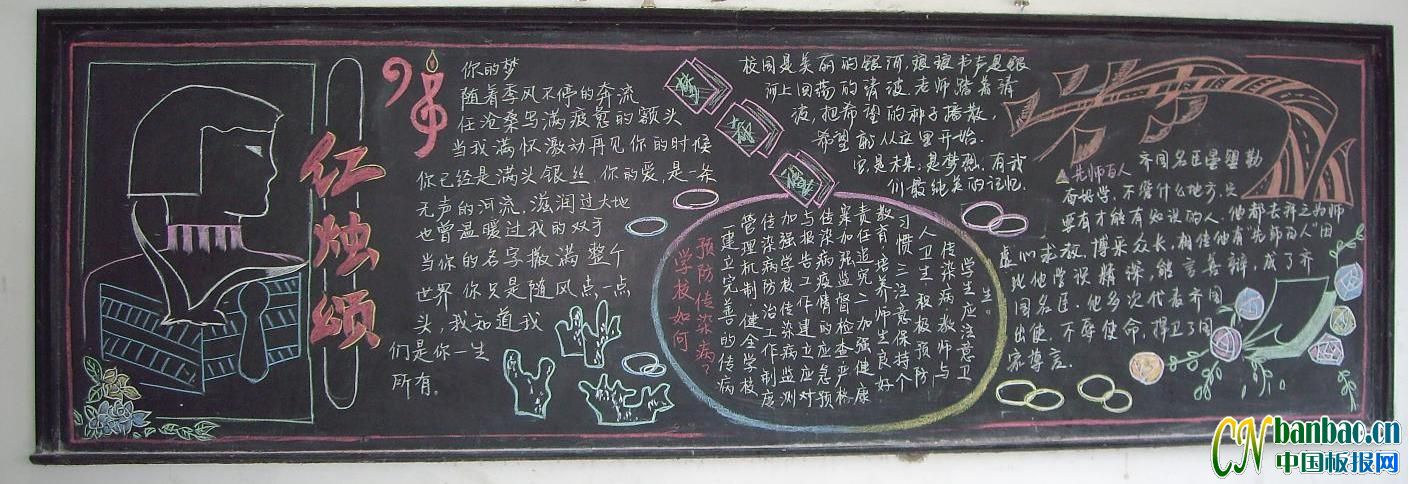 红烛颂
你的梦
随着季风不停的奔流
任沧桑写满疲惫的额头
当我满怀激动再见你的时候
你已经是满头银丝 你的爱,是一条
无声的河流,滋润过大地
也曾温暖过我的双手
当你的名字撒满整个
世界 你只是随风点一点
头,我知道我
们是你一生
所有。
校园是美丽的银河,琅琅书声是银
河上回荡的清波 老师踏着清
波,把希望的种子播散,
希望 从这里开始.
它是未来,是梦想,有我
们最纯美的记忆.
学校如何
预防传染病?
一建立完善的传病
管理机制 健全学校
传染病防治工作制度
加强学校传染病监测
与报告工作建立应对
传染病疫情的应急预
案加强监督检查严格
责任追究二加强健康
教育培养师生良好
习惯三注意保持个
人卫生积极预防
传染病教师与
学生应注意卫
生。
先师百人 齐国名臣晏婴勤
奋好学,不管什么地方,只
要有才能有知识的人,他都去拜之为师
虚心求教,博采众长,相传他有“先师百人”因
此他学识精深,能言善辩,成了齐
国名臣,他多次代表齐国
出使,不辱使命,捍卫了国
家尊言.
CN banbao.cn
中国板报网